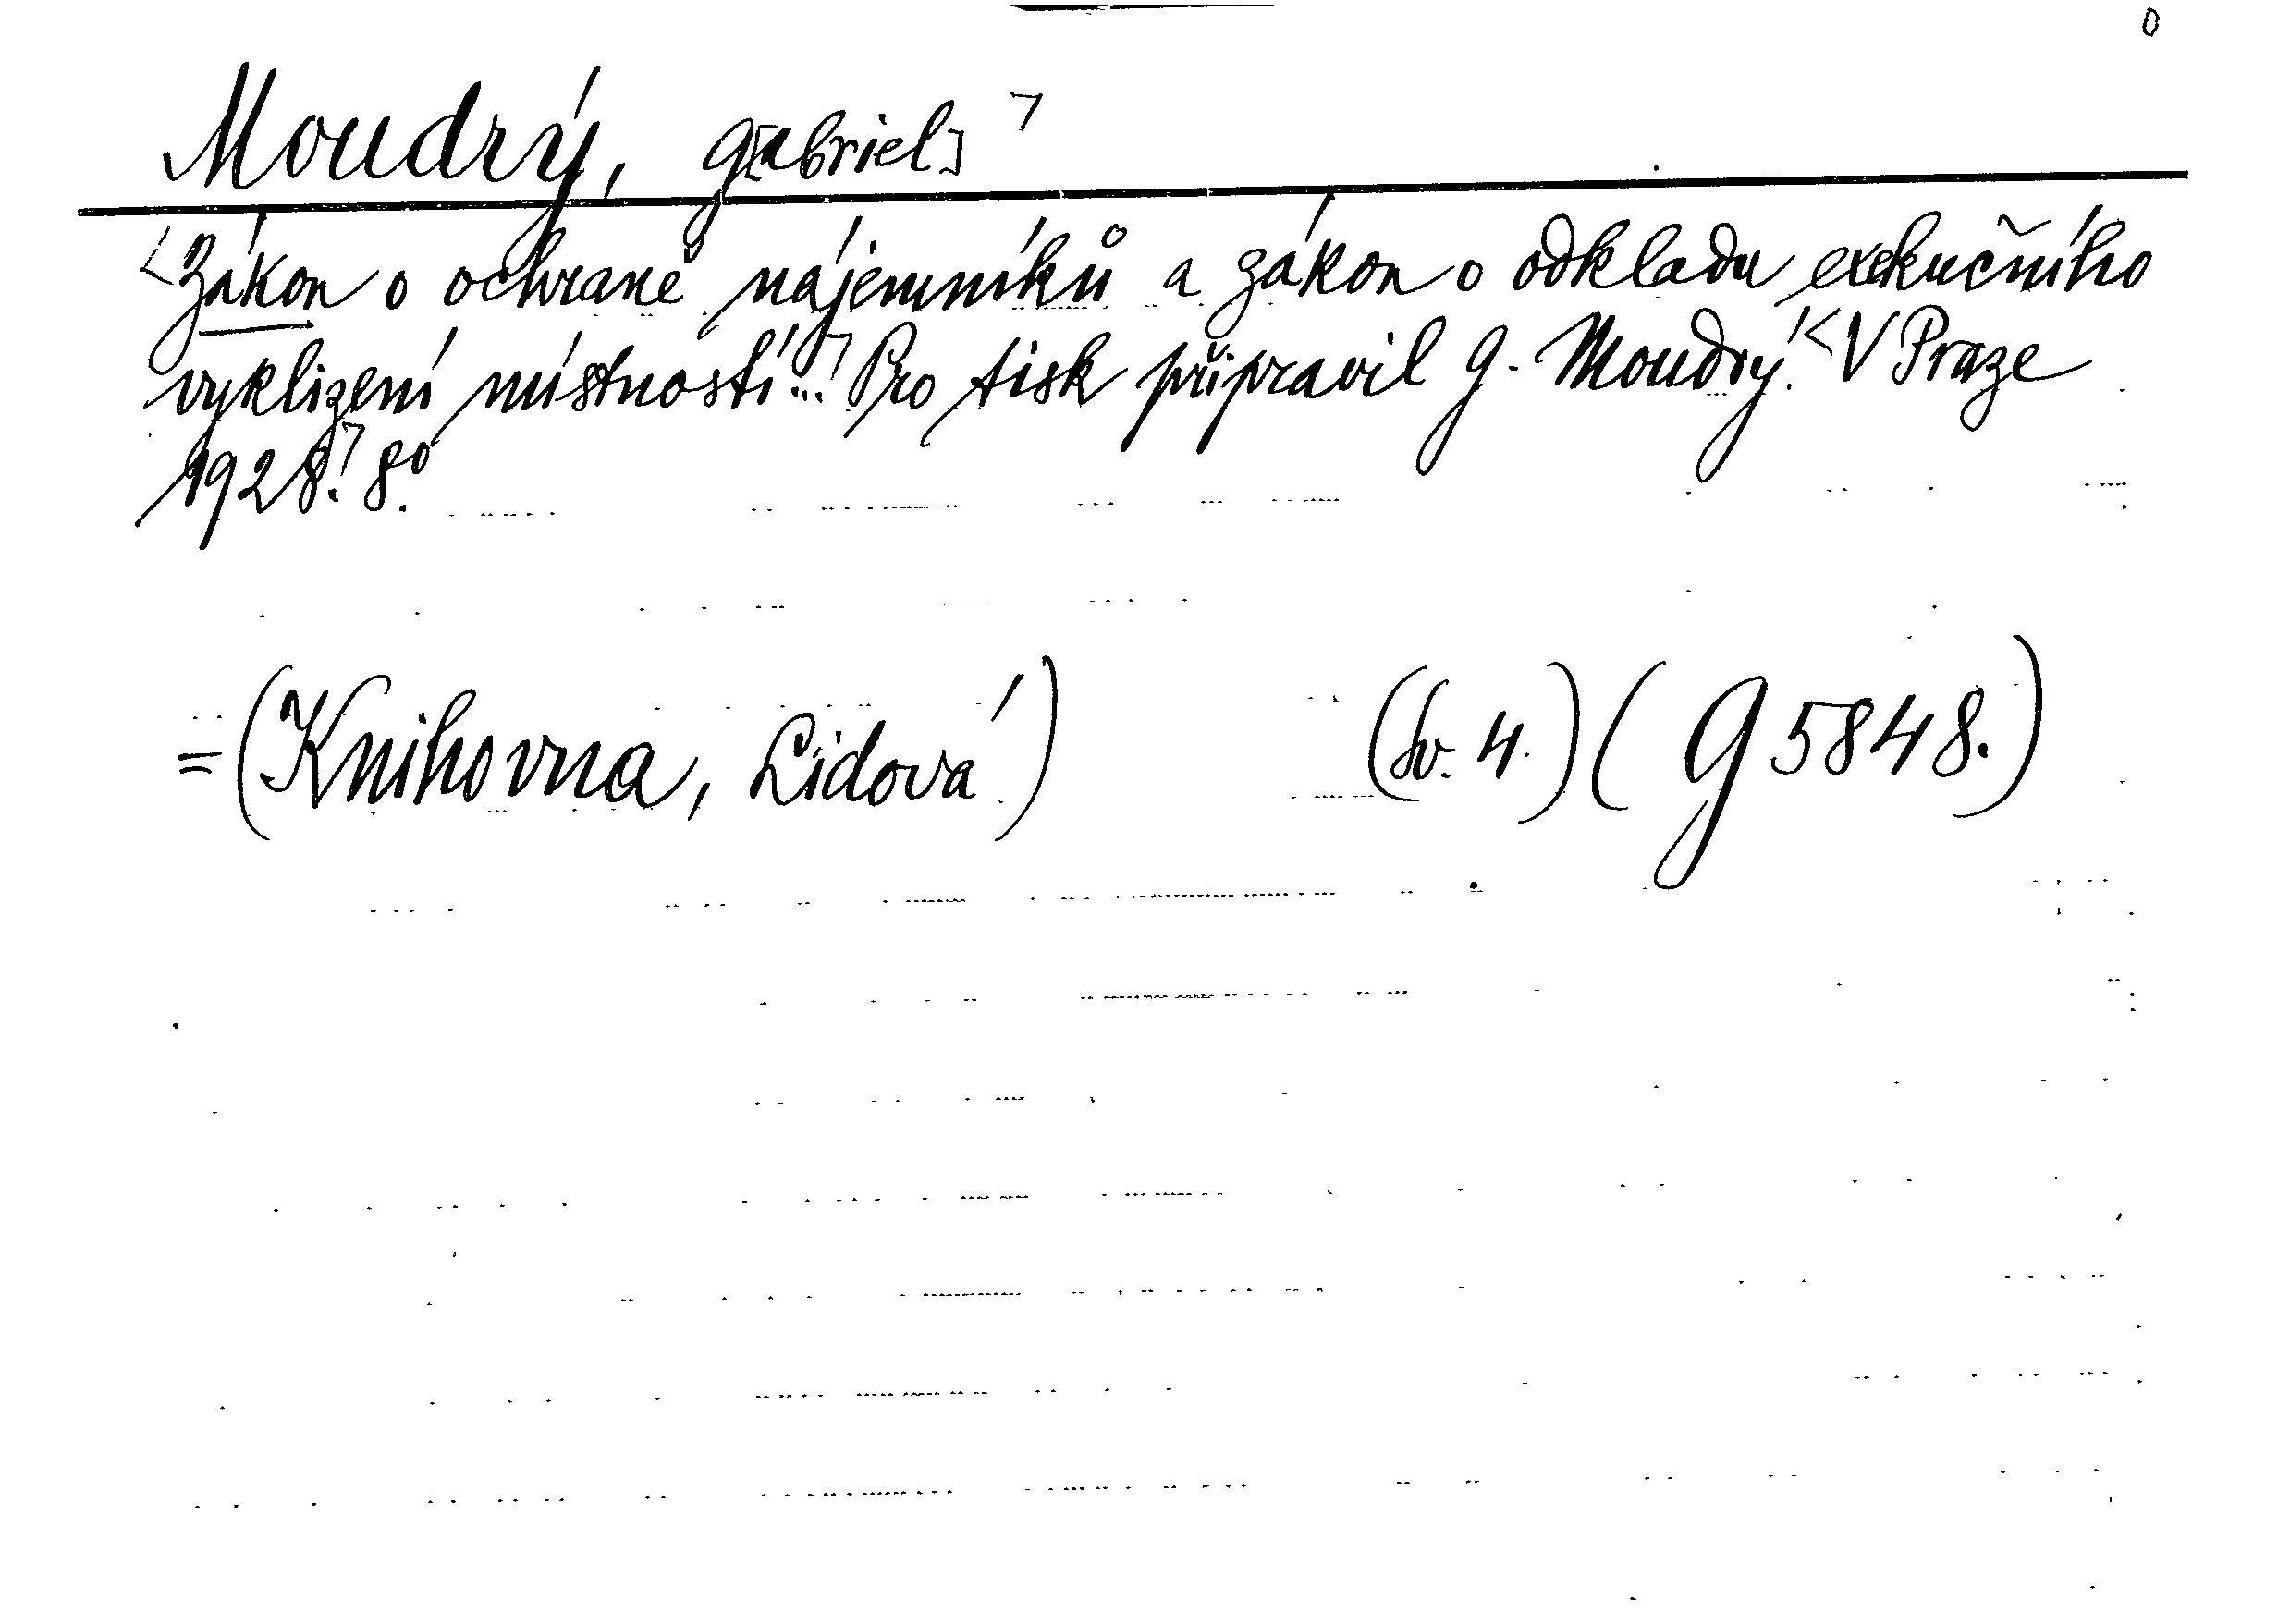 0
Moudrý, G[abriel]
<Zákon o ochraně nájemníků a zákon o odkladu exekučního
vyklizení místností...> Pro tisk připravil G. Moudrý. <V Praze
1928.> 8°.
=(Knihovna, Lidová) (Sv. 4.) (G 5848.)